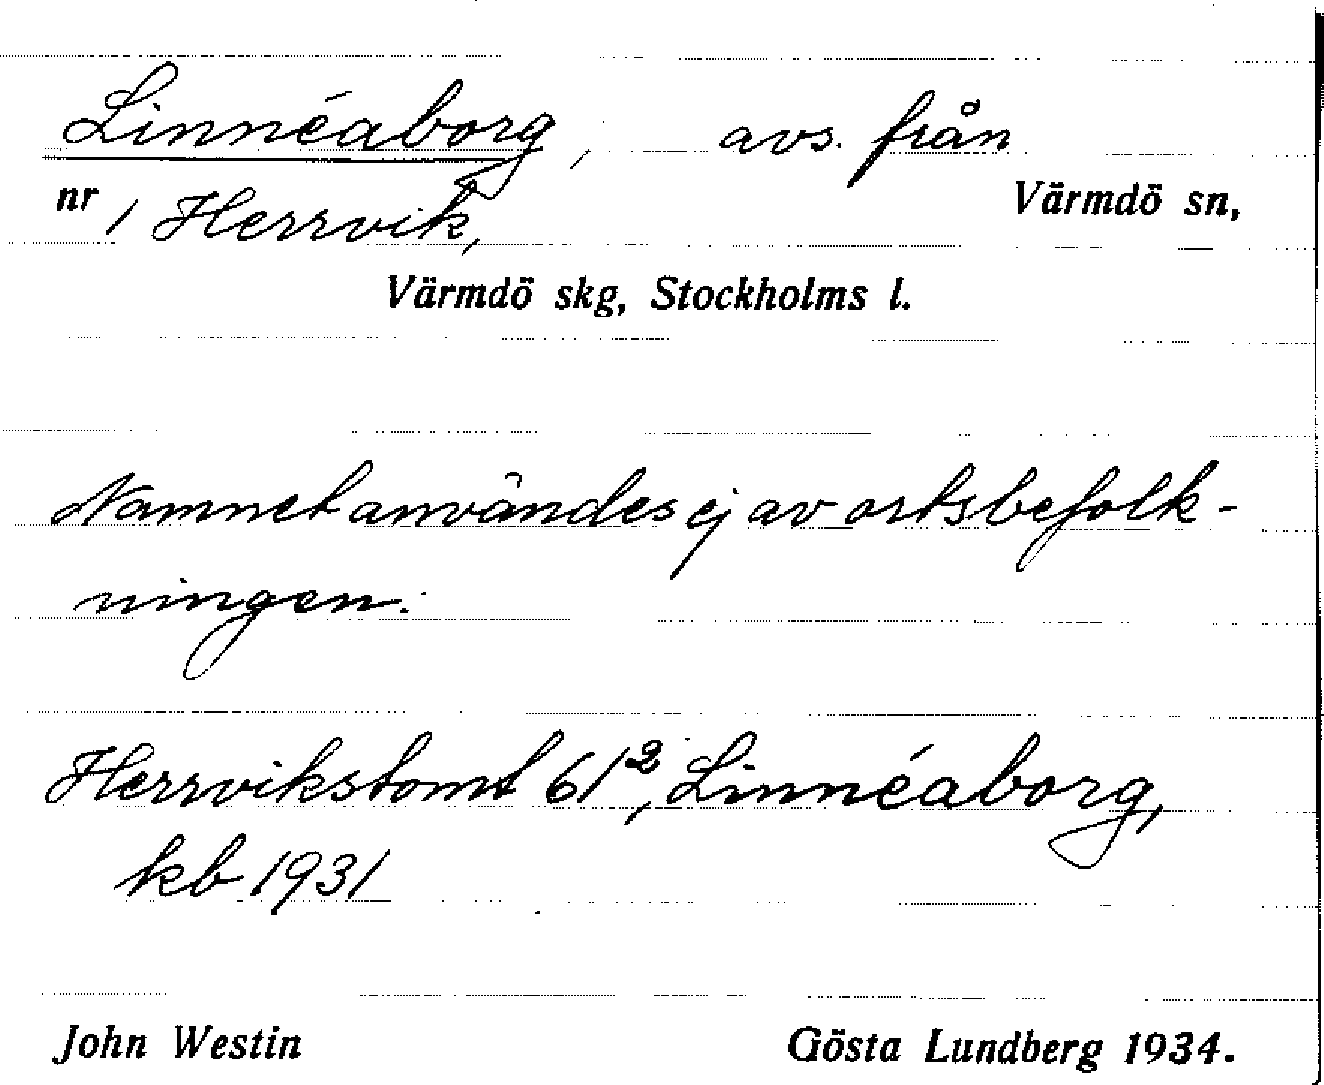 Linnéaborg, avs. från
nr 1 Herrvik, Värmdö sn,
Värmdö skg, Stockholms l.
Namnet användes ej av ortsbefolk-
ningen.
Herrvikstomt 61², Linnéaborg,
kb 1931
John Westin Gösta Lundberg 1934.